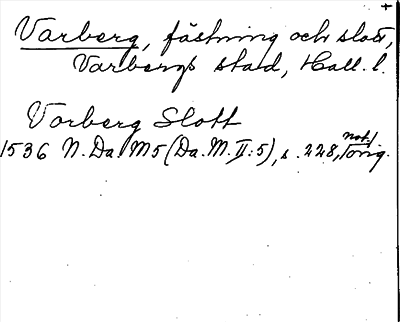 +
Varberg, fästning och slott,
Varbergs stad, Hall. l.
Vorberg Slott
1536 N.Da.M5 (Da.M.II:5), s. 228, not./orig.